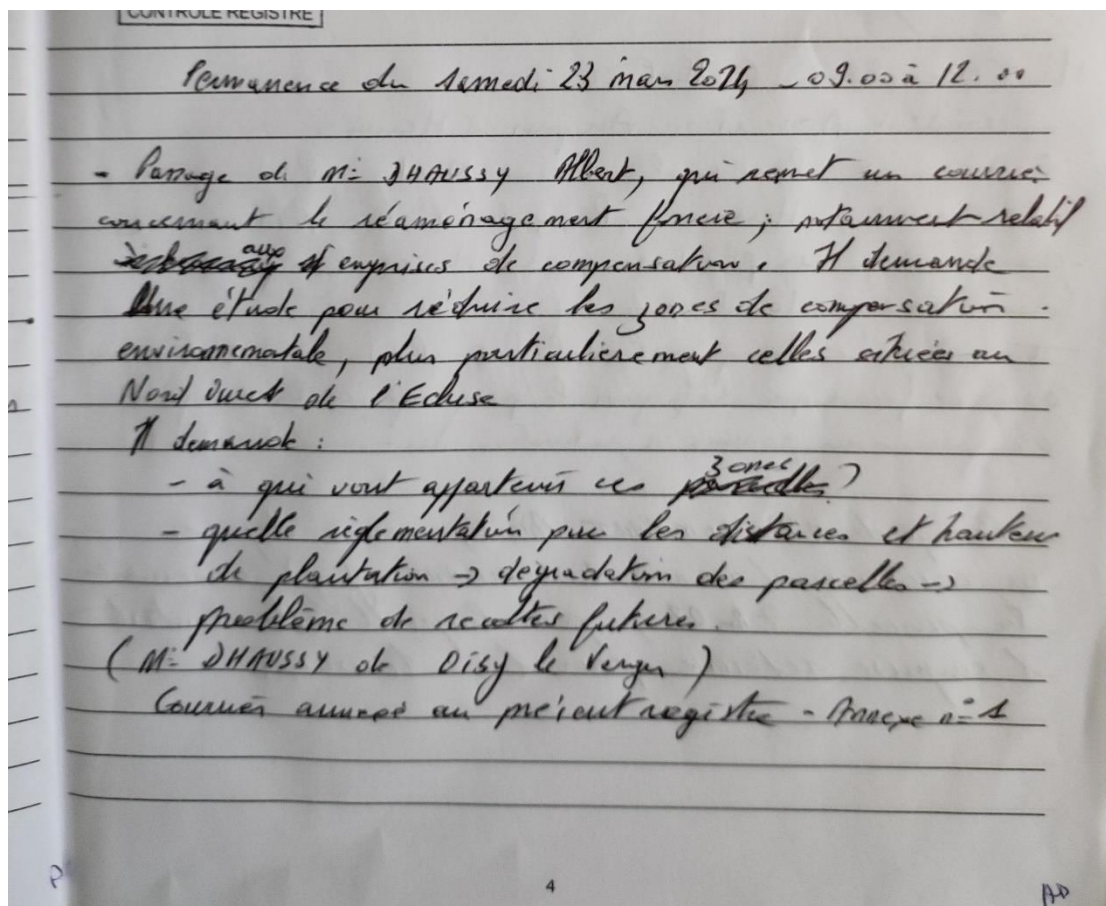 CONTROLE REGISTRE
Permanence du samedi 23 mars 2024 - 09.00 à 12.00
- Passage de Mr DHAUSSY Albert, qui remet un courrier
concernant le réaménagement foncier ; notamment relatif
aux emprises de compensation. Il demande
Une étude pour réduire les zones de compensation
environnementale, plus particulièrement celles situées au
Nord Ouest de l'Ecluse
Il demande :
- à qui vont appartenir ces zones ?
- quelle réglementation pour les distances et hauteur
de plantation -> dégradation des parcelles ->
problème de recoltes futures.
(Mr DHAUSSY de Oisy le Verger)
Courrier annexé au présent registre - Annexe n° 1
4
AD